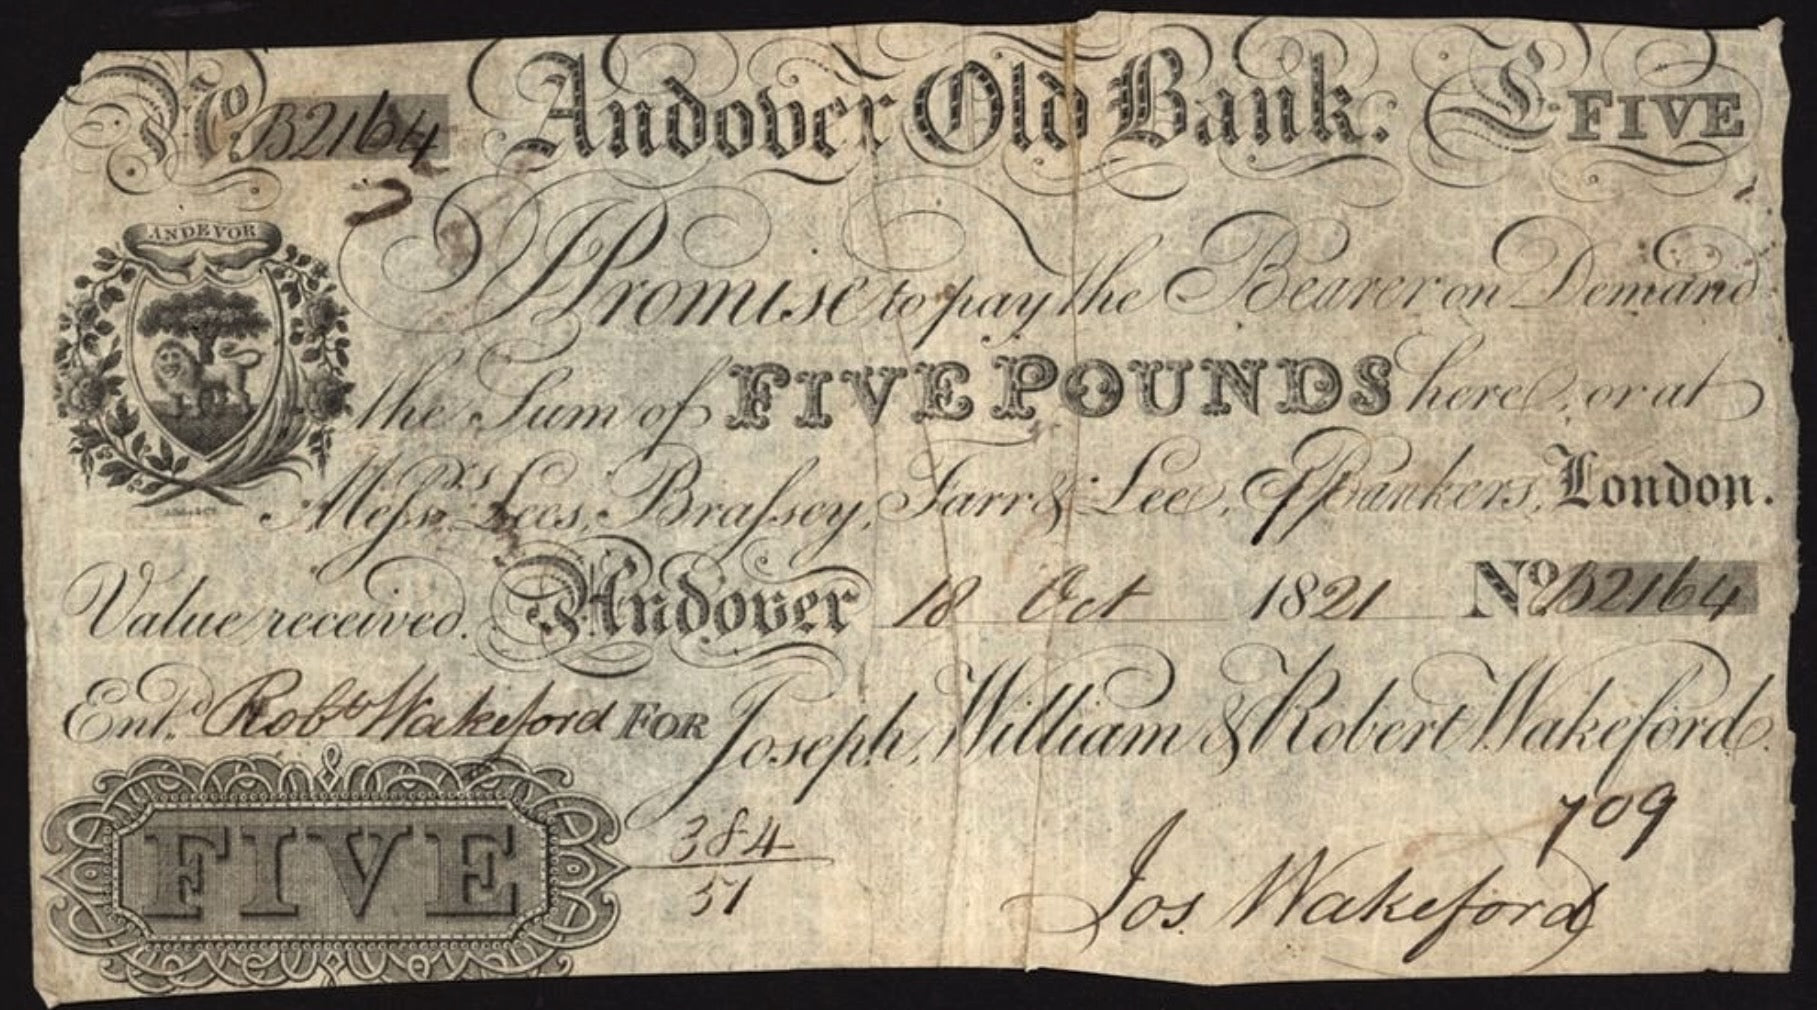 No. B2164 Andover Old Bank. £ FIVE
7
ANDEVOR
I Promise to pay the Bearer on Demand
the Sum of FIVE POUNDS here, or at
Messrs. Lees, Brassey, Farr & Lee, Bankers, London.
Value received. Andover 18 Oct 1821 No. B2164
Entd. Robt Wakeford FOR Joseph, William & Robert Wakeford.
709
FIVE 384
51
Jos. Wakeford